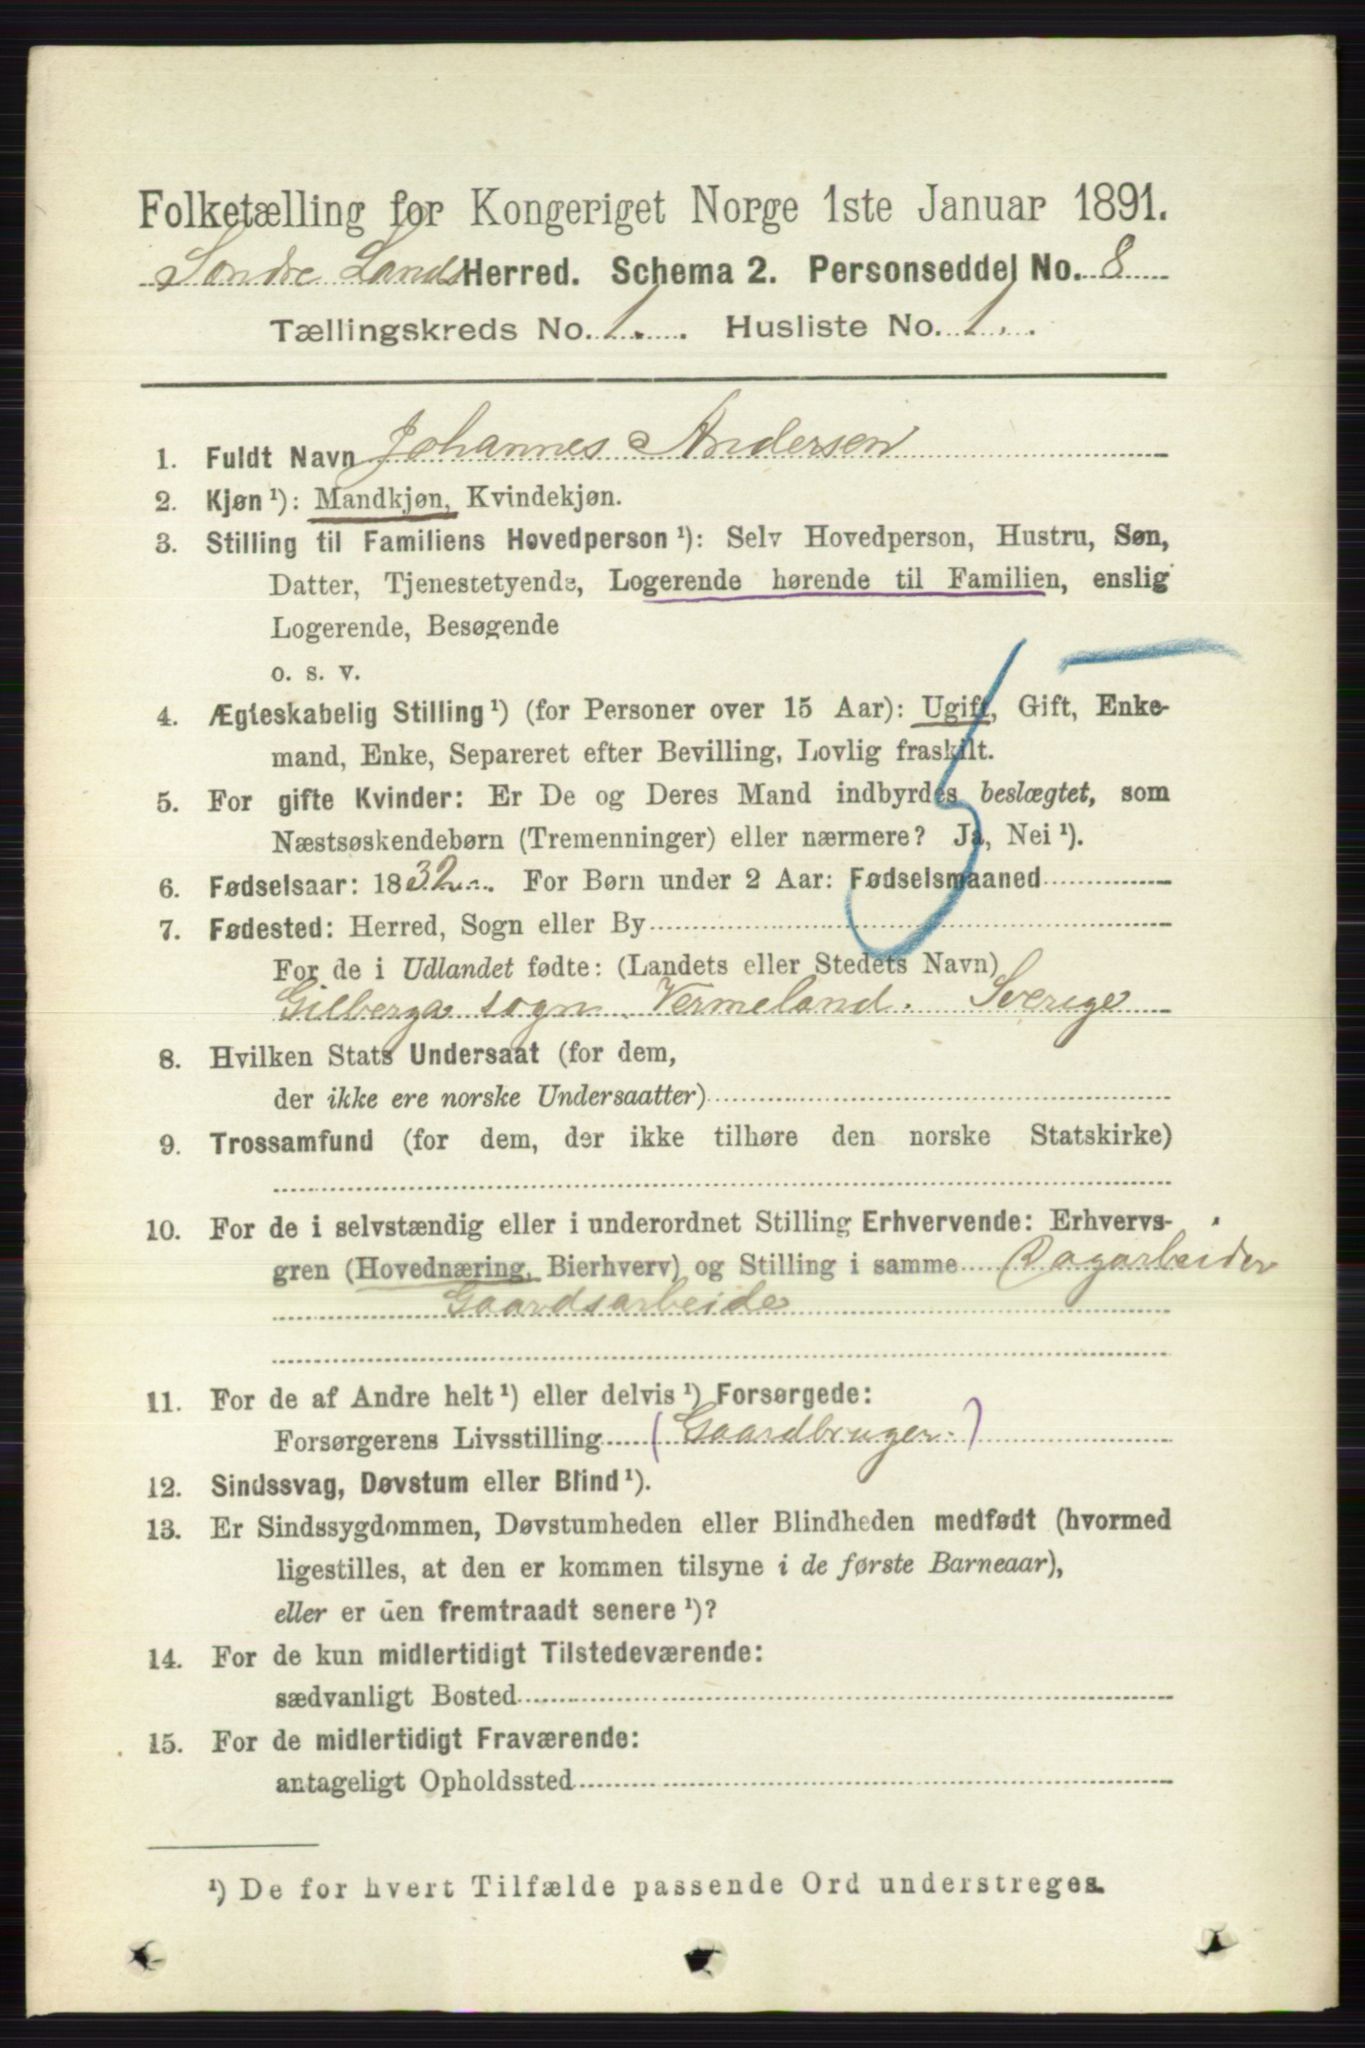 Folketælling for Kongeriget Norge 1ste Januar 1891.
Søndre Lands Herred. Schema 2. Personseddel No. 8
Tællingskreds No. 1. Husliste No. 1.
1. Fuldt Navn Johannes Andersen
2. Kjøn¹): Mandkjøn, Kvindekjøn.
3. Stilling til Familiens Hovedperson¹): Selv Hovedperson, Hustru, Søn,
Datter, Tjenestetyende, Logerende hørende til Familien, enslig
Logerende, Besøgende
o. s. v.
4. Ægteskabelig Stilling¹) (for Personer over 15 Aar): Ugift, Gift, Enke-
mand, Enke, Separeret efter Bevilling, Lovlig fraskilt.
5. For gifte Kvinder: Er De og Deres Mand indbyrdes beslægtet, som
Næstsøskendebørn (Tremenninger) eller nærmere? Ja, Nei¹).
6. Fødselsaar: 1832 For Børn under 2 Aar: Fødselsmaaned
7. Fødested: Herred, Sogn eller By
For de i Udlandet fødte: (Landets eller Stedets Navn)
Gilberga sogn. Vermeland. Sverige
8. Hvilken Stats Undersaat (for dem,
der ikke ere norske Undersaatter)
9. Trossamfund (for dem, der ikke tilhøre den norske Statskirke)
10. For de i selvstændig eller i underordnet Stilling Erhvervende: Erhvervs-
gren (Hovednæring, Bierhverv) og Stilling i samme Dagarbeider
Gaardsarbeide
11. For de af Andre helt¹) eller delvis¹) Forsørgede:
Forsørgerens Livsstilling (Gaardbruger.)
12. Sindssvag, Døvstum eller Blind¹).
13. Er Sindssygdommen, Døvstumheden eller Blindheden medfødt (hvormed
ligestilles, at den er kommen tilsyne i de første Barneaar),
eller er den fremtraadt senere¹)?
14. For de kun midlertidigt Tilstedeværende:
sædvanligt Bosted
15. For de midlertidigt Fraværende:
antageligt Opholdssted
¹) De for hvert Tilfælde passende Ord understreges.